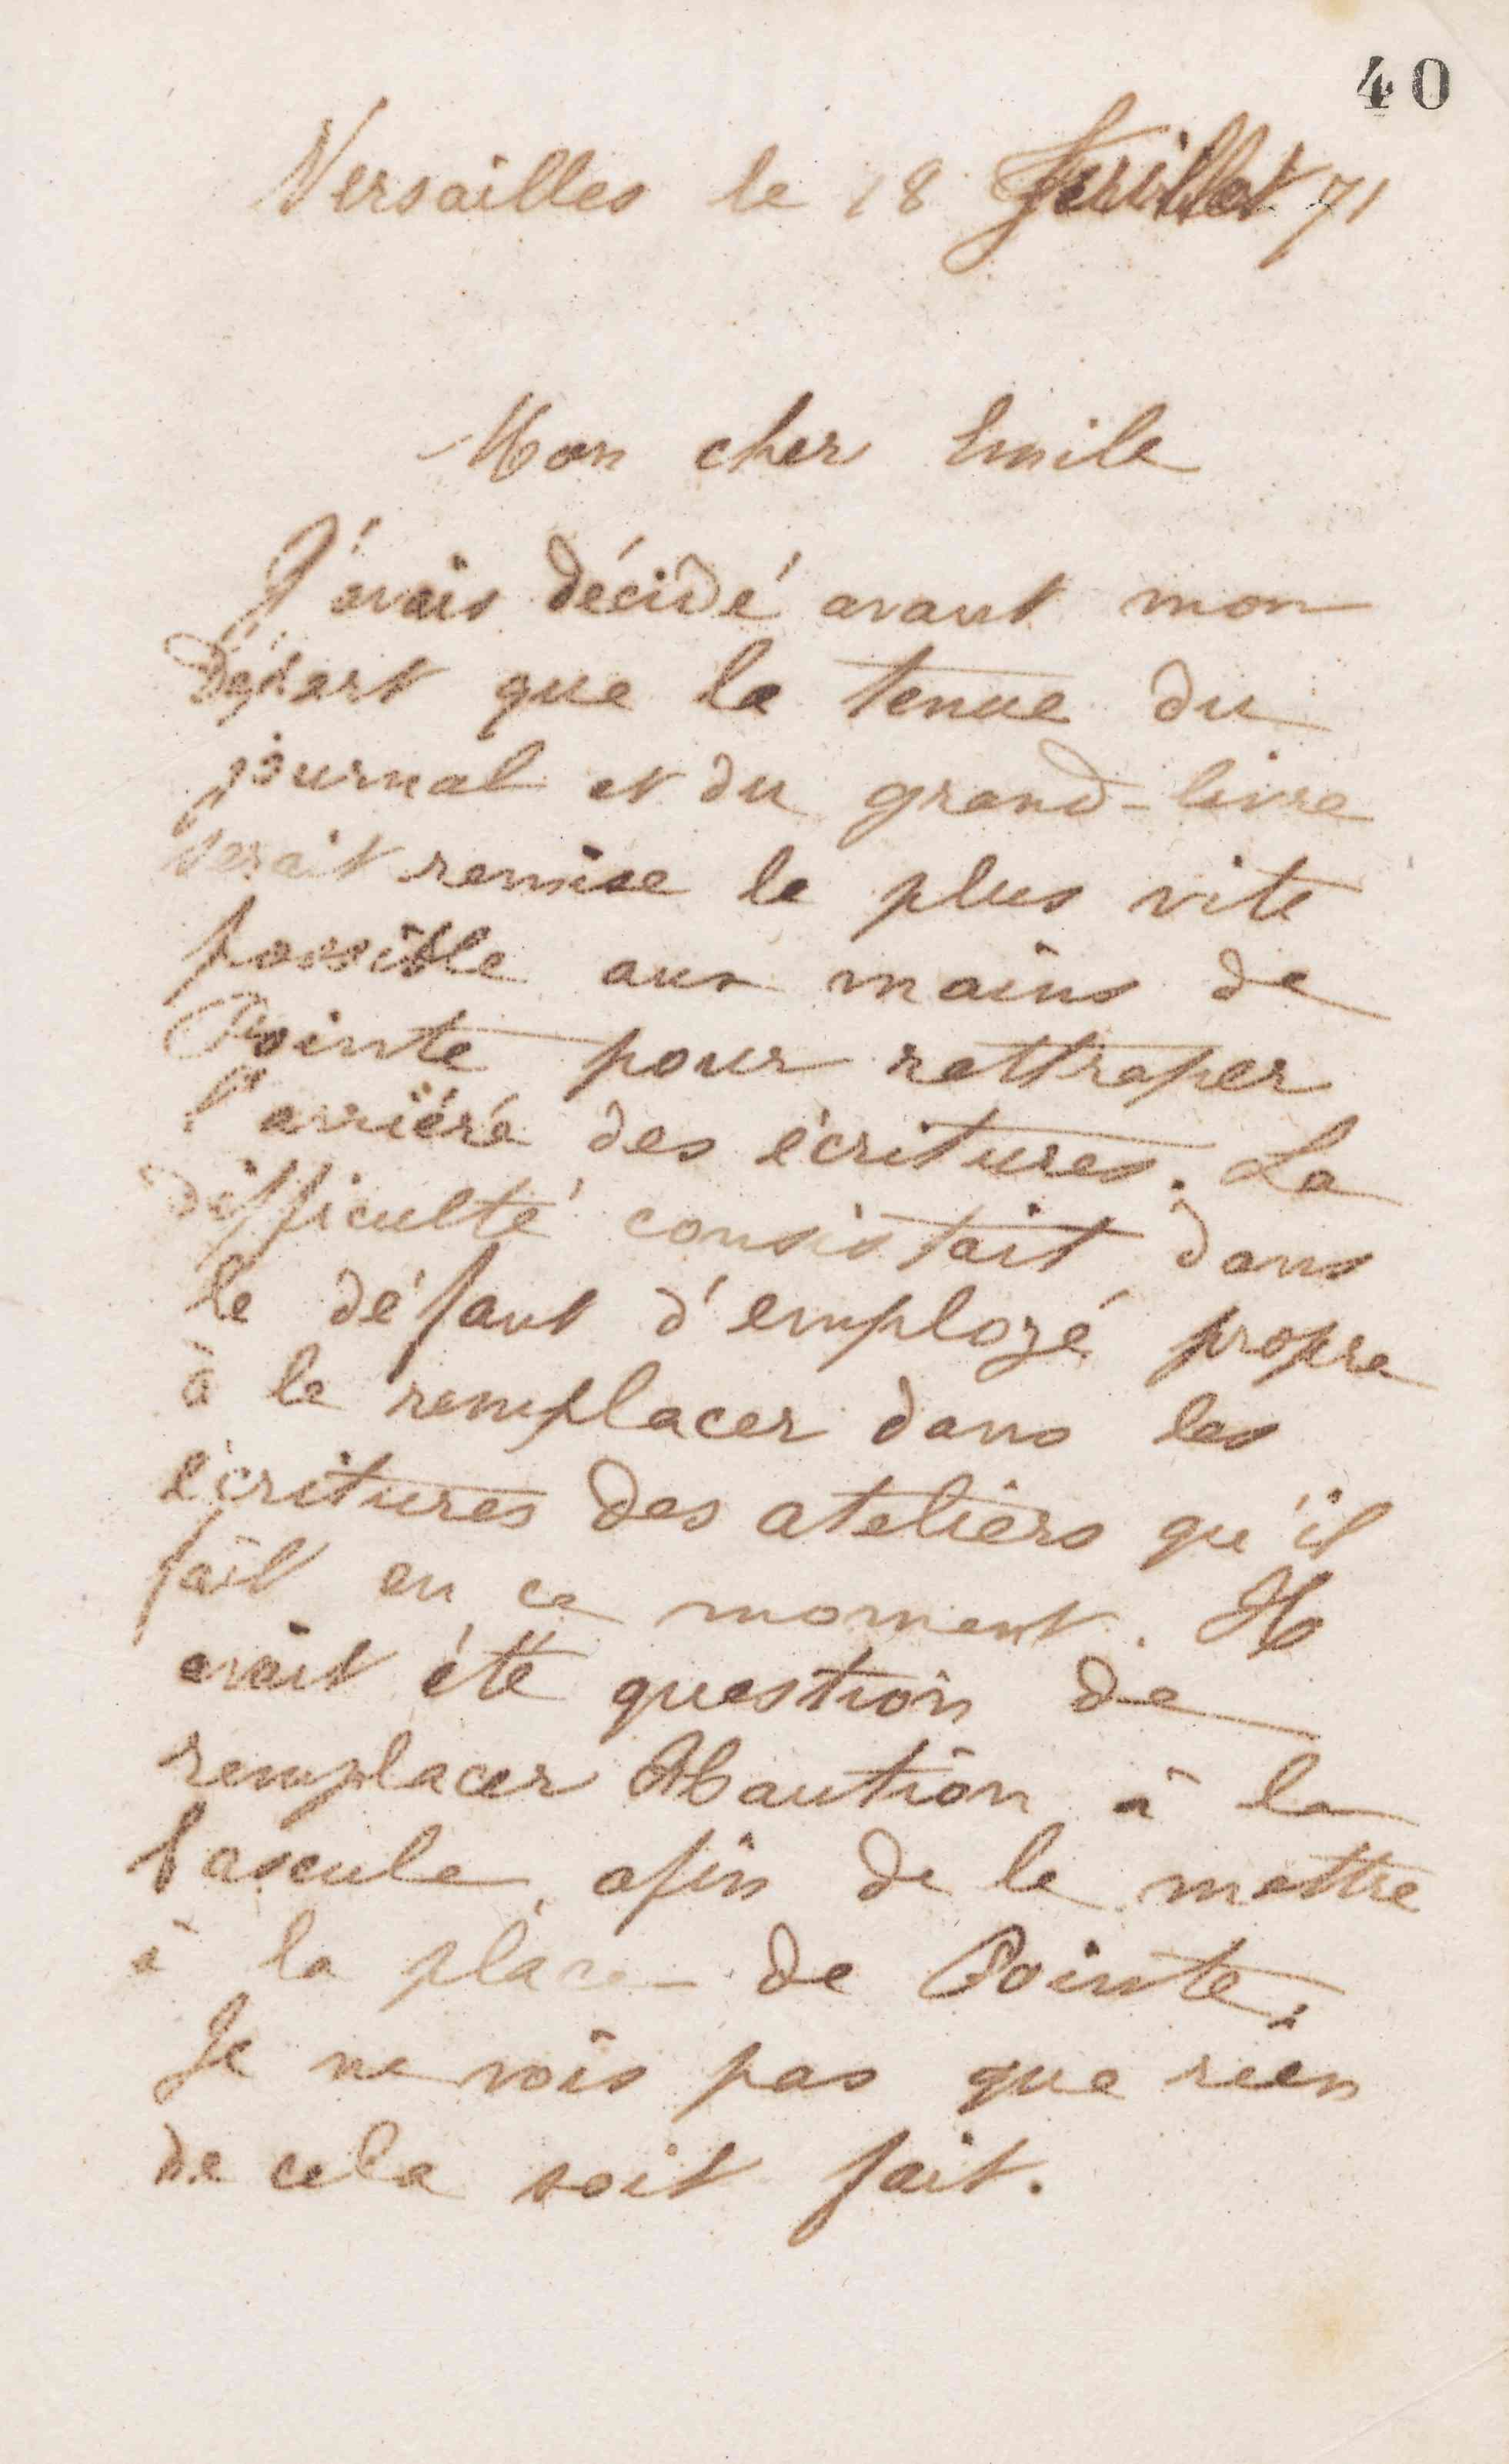 40
Versailles le 18 Juillet 71
Mon cher Emile
J'avais décidé avant mon
départ que la tenue du
journal et du grand-livre
serait remise le plus vite
possible aux mains de
Pointe pour rattraper
l'arriéré des écritures. La
difficulté consistait dans
le défaut d'employé propre
à le remplacer dans les
écritures des ateliers qu'il
fait en ce moment. Il
avait été question de
remplacer à la
bascule afin de le mettre
à la place de Pointe.
Je ne vois pas que rien
de cela soit fait.